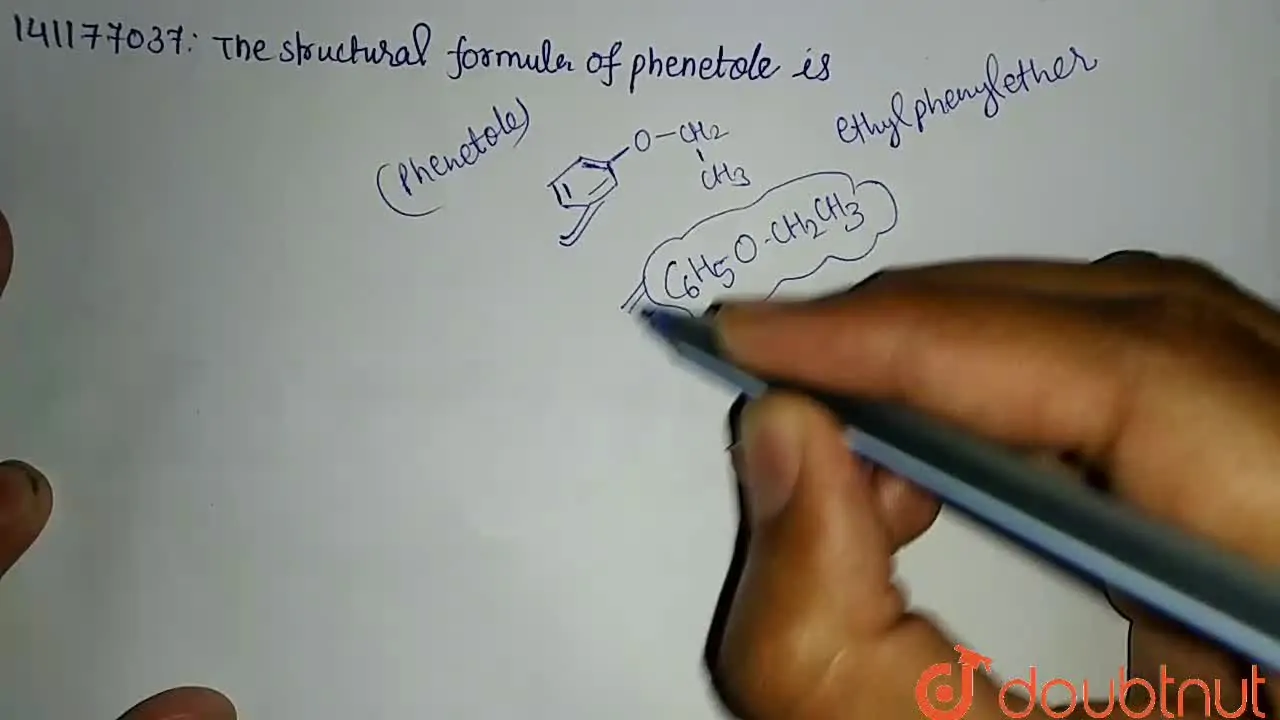 141177037: The structural formula of phenetole is
(Phenetole)
O-CH2
CH3
ethylphenylether
C6H5O-CH2CH3
doubtnut